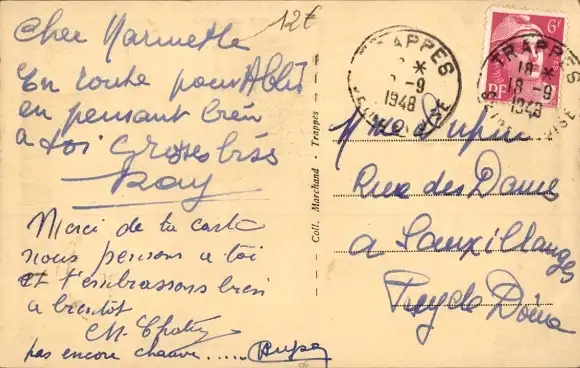 12€
Cher Marinette
En route pour Ablis
en pensant bien
a toi Grosses bises
Ray
Merci de ta carte
nous pensons a toi
et t'embrassons bien
a bientôt
pas encore chauve .....
Coll. Marchand - Trappes
TRAPPES
18 *
-9
1948
SEINE-ET-OISE
6F
RF
TRAPPES
18 *
18 -9
1948
SEINE-ET-OISE
Mme Dupin
Rue des Dames
a Sauxillanges
Puy de Dôme